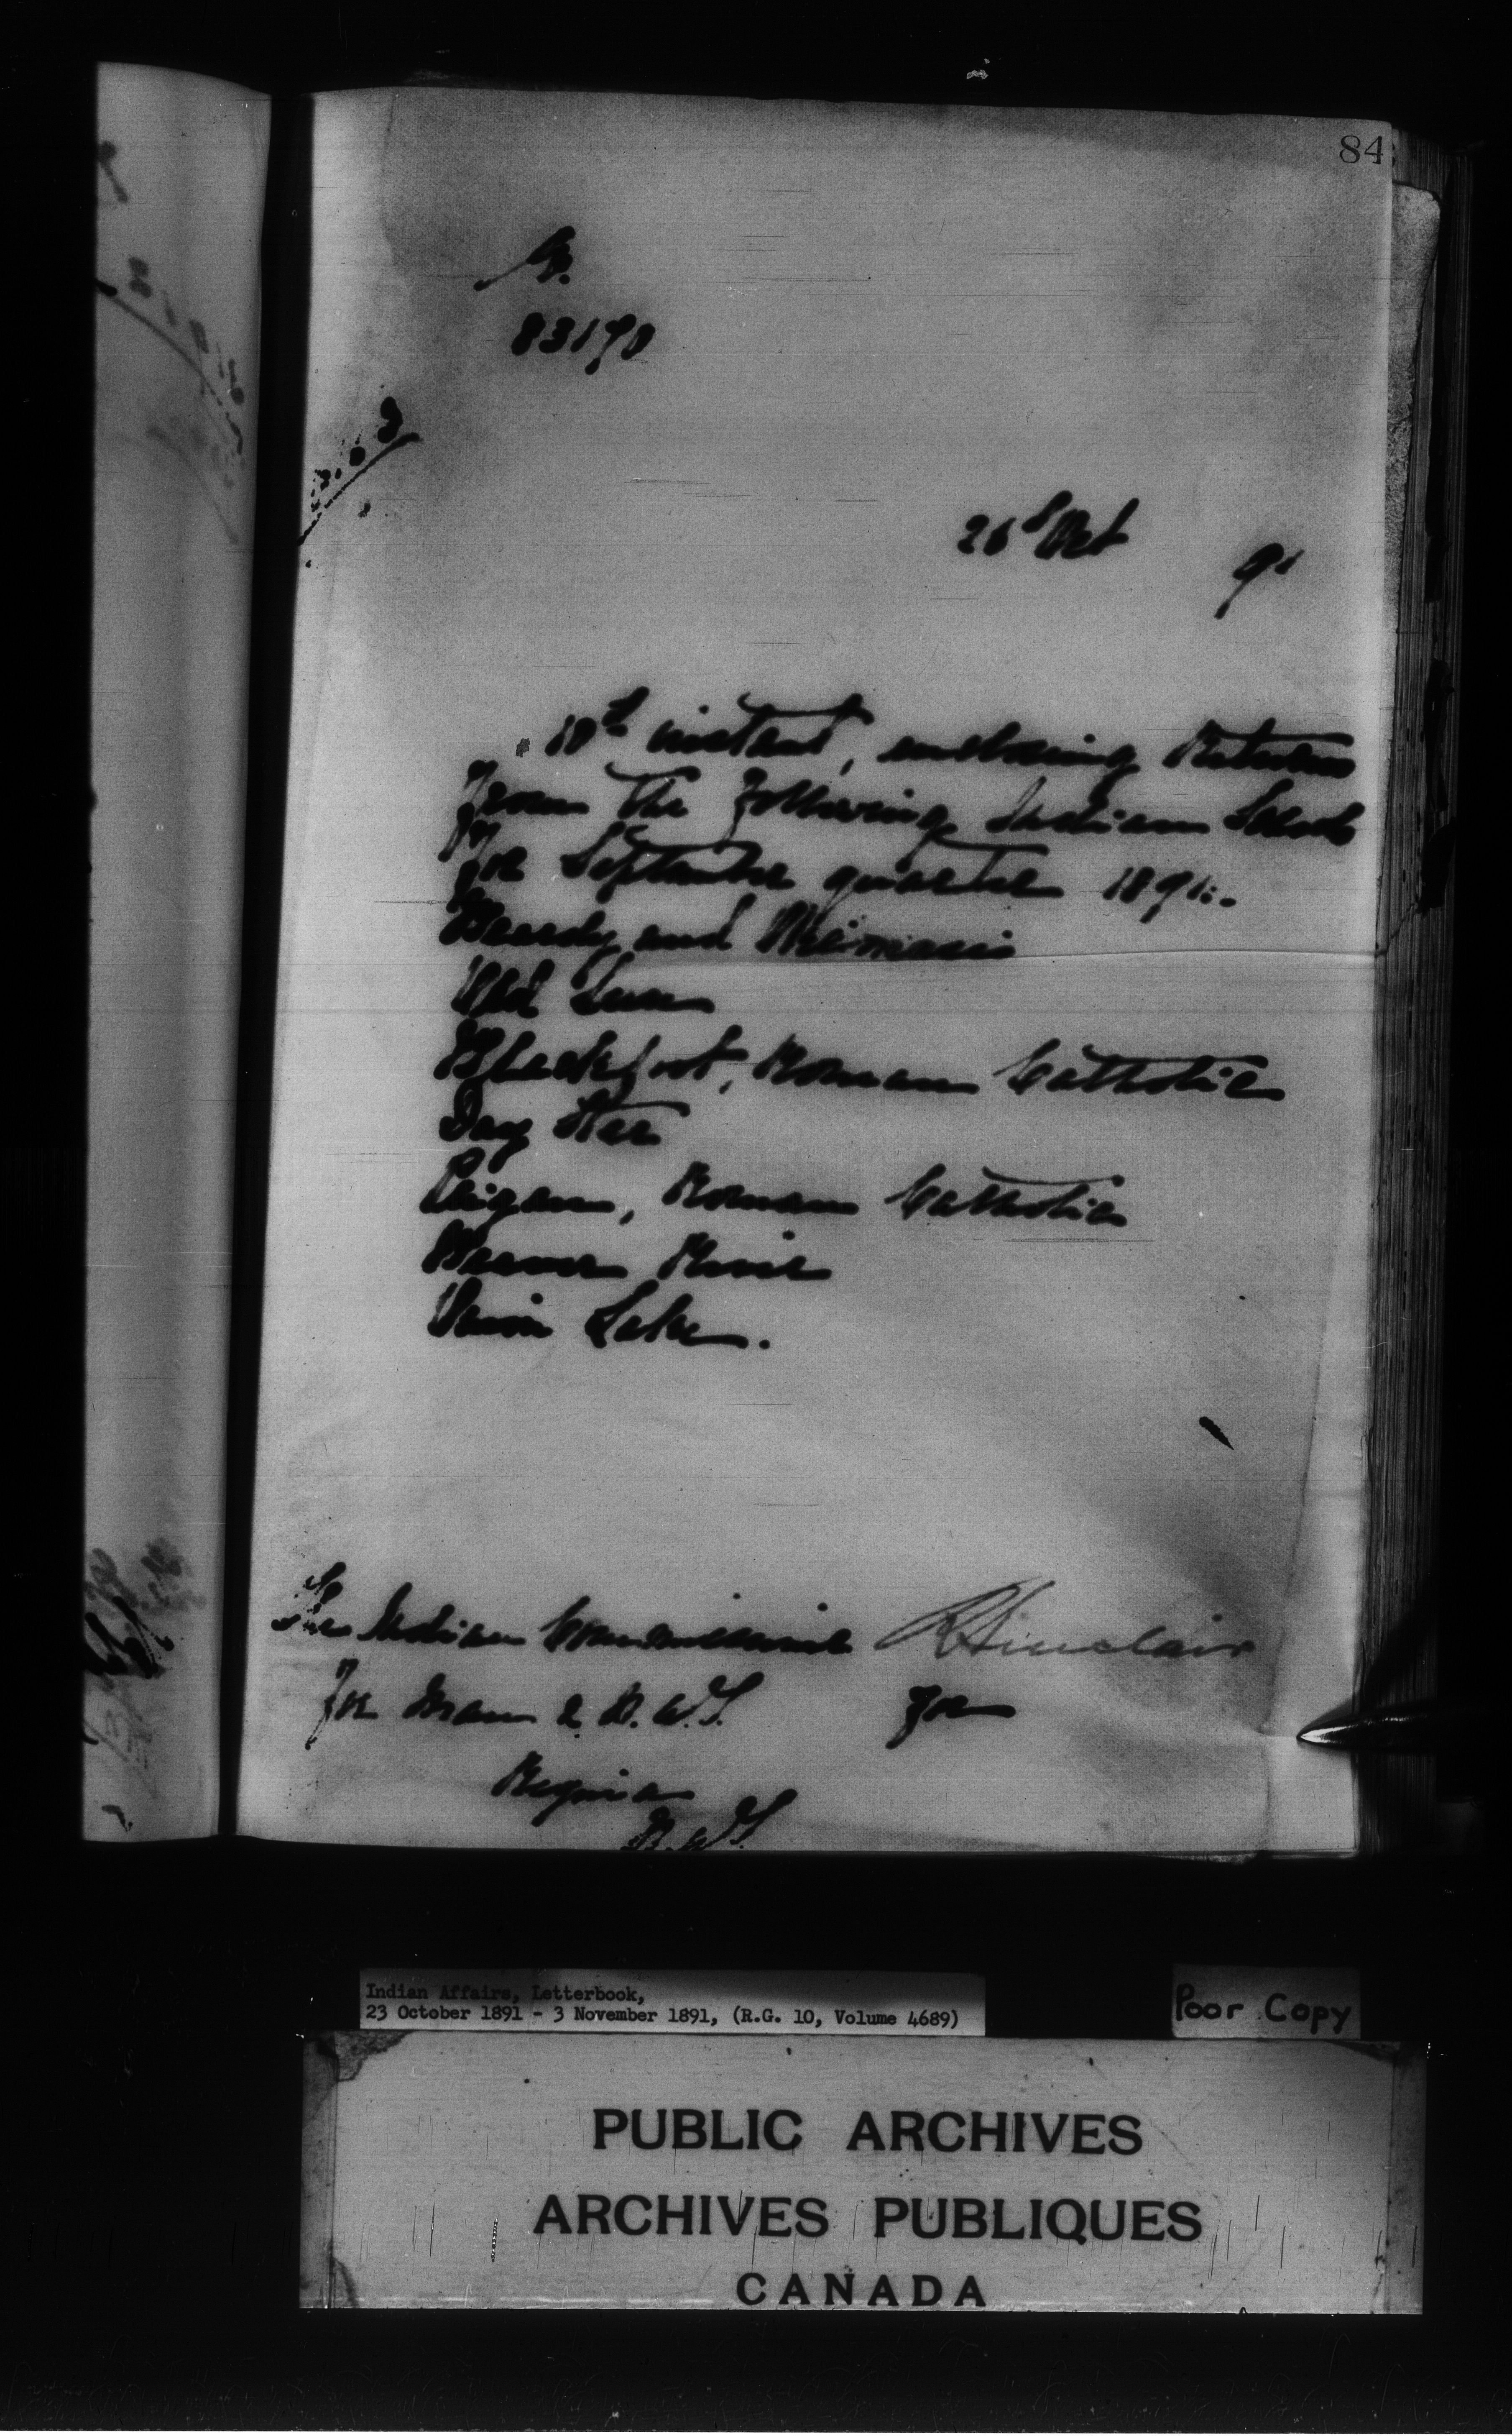 84
83170
26th Oct 91
10th instant, enclosing Returns
from the following Indian Schools
for September quarter 1891:-
Beardy and
Old Sun
Blackfoot, Roman Catholic
Day Star
Peigan, Roman Catholic
Beaver River
Onion Lake.
The Indian Commissioner RSinclair
for Man & N.W.T. for
Regina
N.W.T.
Indian Affairs, Letterbook,
23 October 1891 - 3 November 1891, (R.G. 10, Volume 4689)
Poor Copy
PUBLIC ARCHIVES
ARCHIVES PUBLIQUES
CANADA